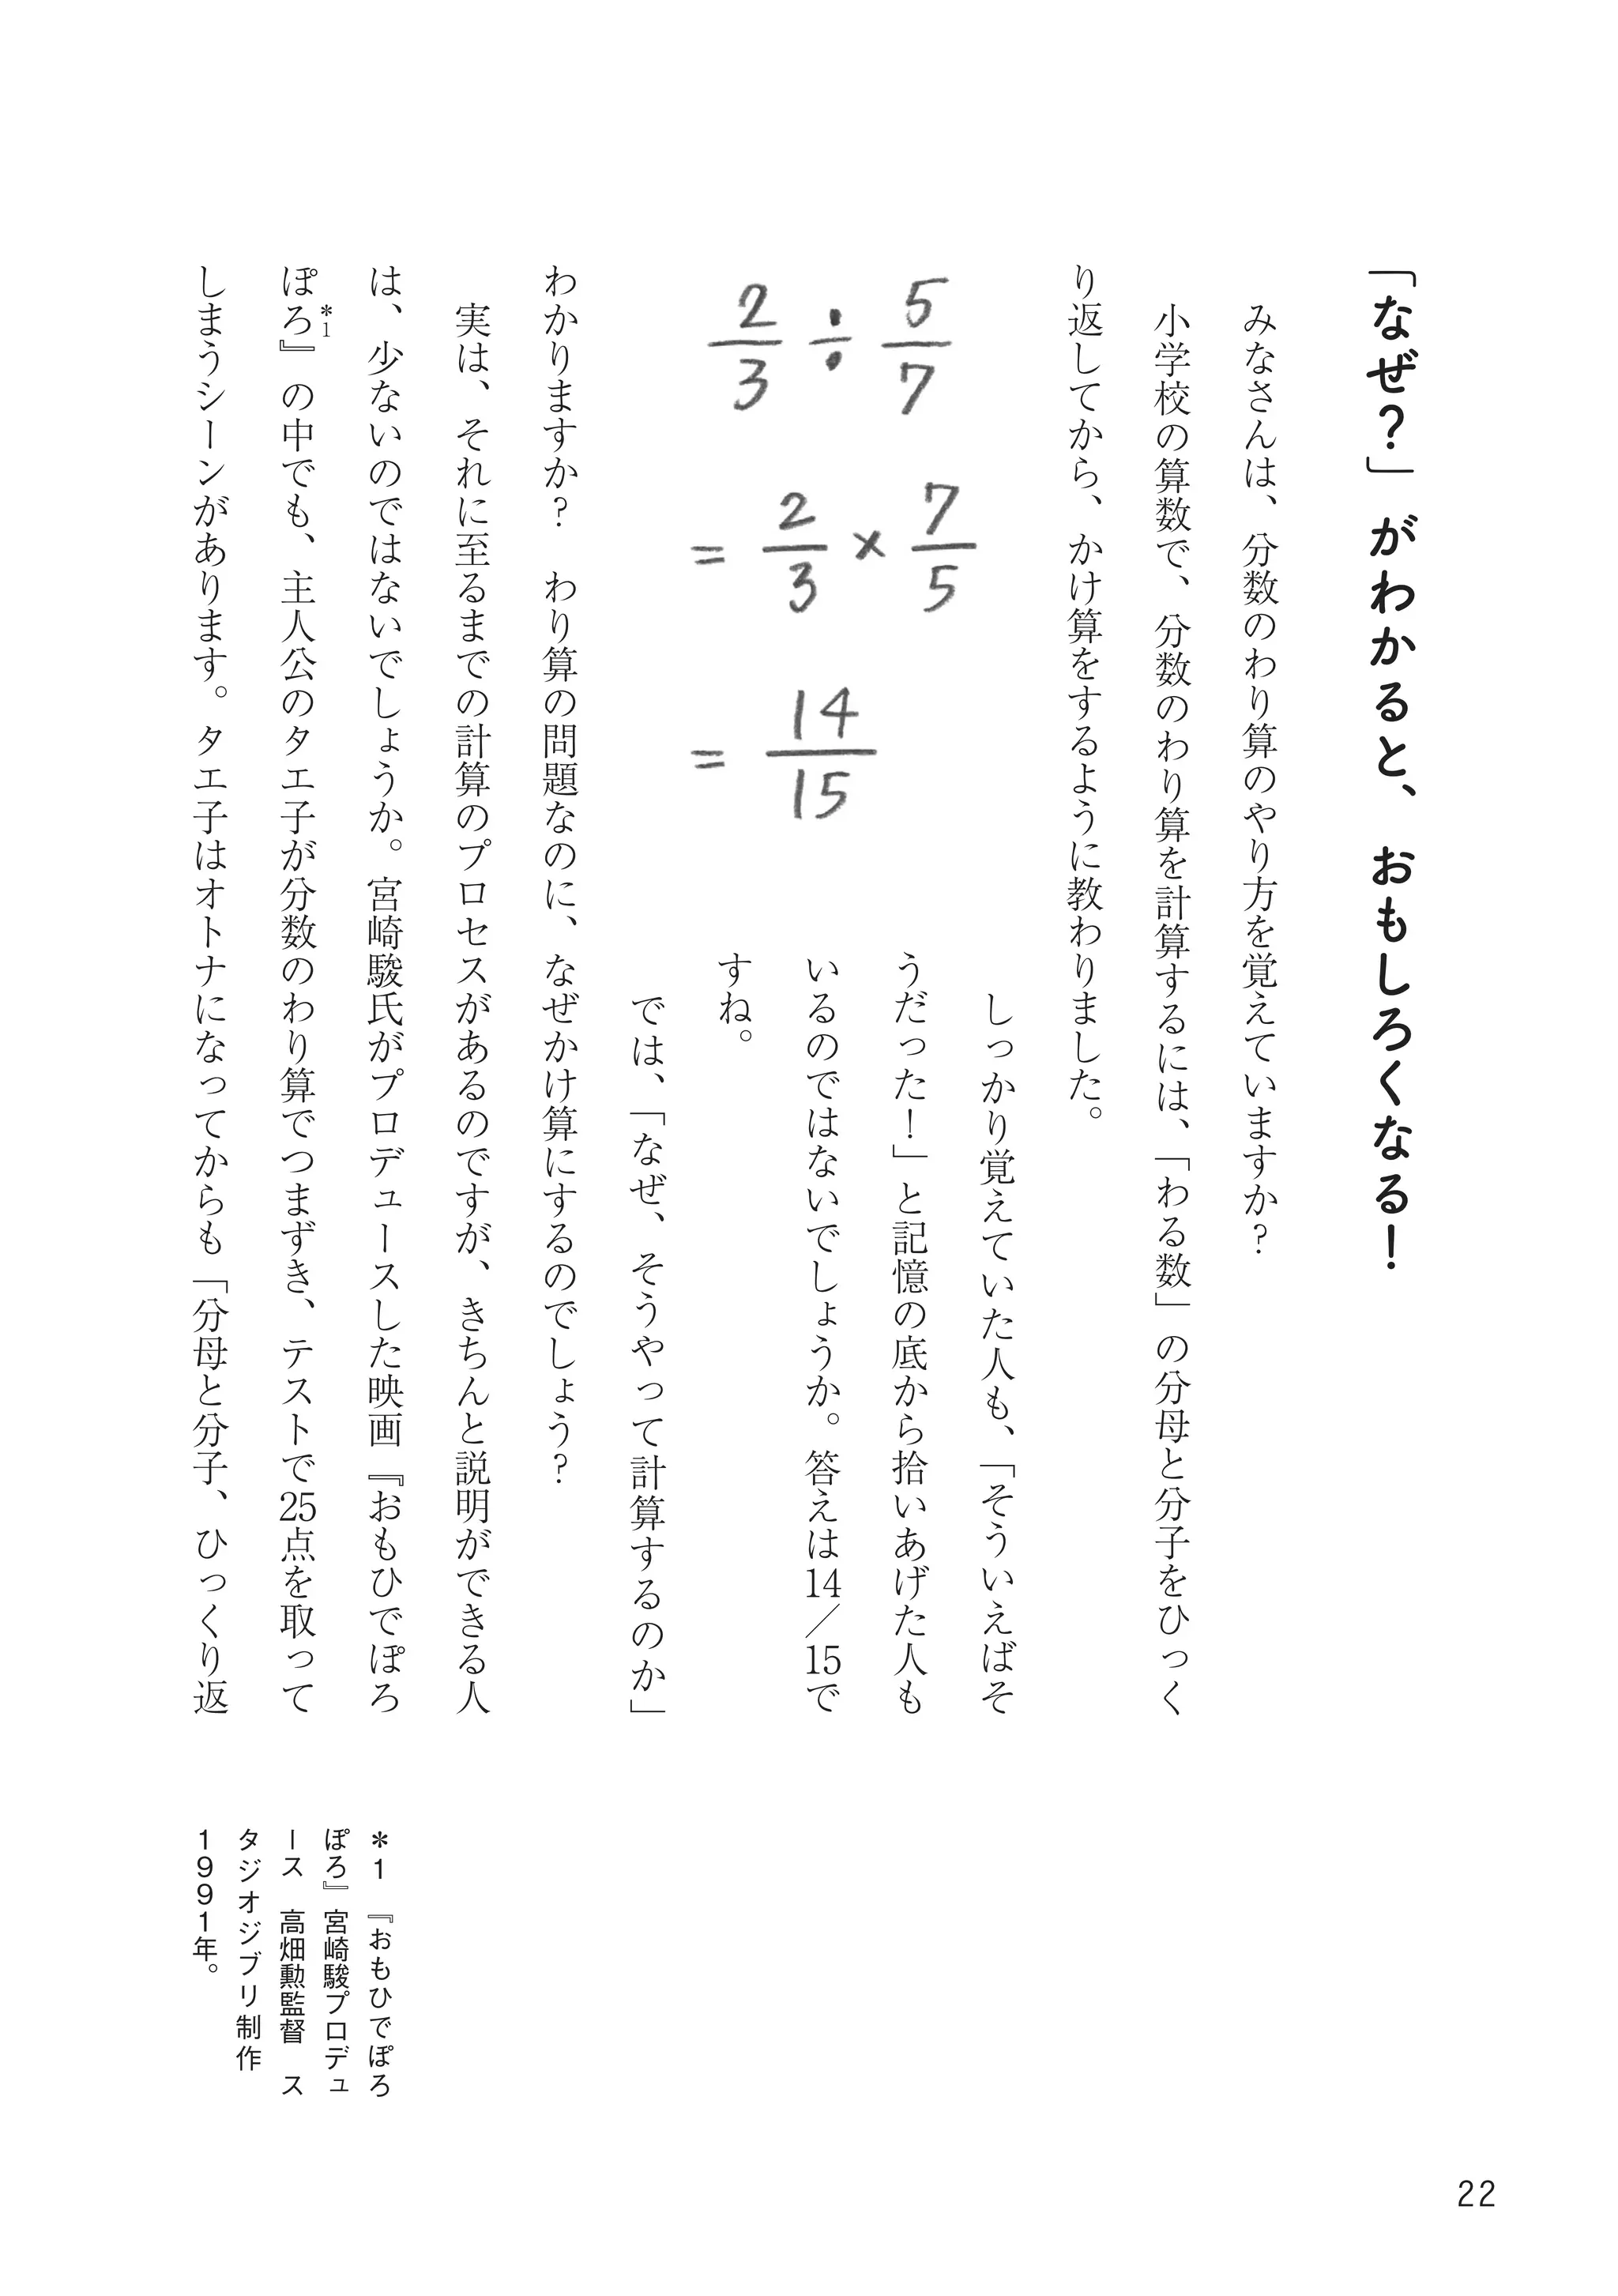 「なぜ？」がわかると、おもしろくなる！
みなさんは、分数のわり算のやり方を覚えていますか？
小学校の算数で、分数のわり算を計算するには、「わる数」の分母と分子をひっく
り返してから、かけ算をするように教わりました。
2/3 ÷ 5/7
= 2/3 × 7/5
= 14/15
しっかり覚えていた人も、「そういえばそ
うだった！」と記憶の底から拾いあげた人も
いるのではないでしょうか。答えは14／15で
すね。
では、「なぜ、そうやって計算するのか」
わかりますか？　わり算の問題なのに、なぜかけ算にするのでしょう？
実は、それに至るまでの計算のプロセスがあるのですが、きちんと説明ができる人
は、少ないのではないでしょうか。宮崎駿氏がプロデュースした映画『おもひでぽろ
ぽろ』*1の中でも、主人公のタエ子が分数のわり算でつまずき、テストで25点を取って
しまうシーンがあります。タエ子はオトナになってからも「分母と分子、ひっくり返
*1　『おもひでぽろ
ぽろ』宮崎駿プロデュ
ース　高畑勲監督　ス
タジオジブリ制作
1991年。
22